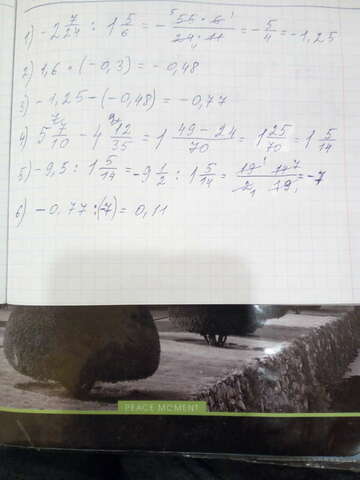 1) -2 7/24 : 1 5/6 = - 55 · 6 / 24 · 11 = - 5/4 = -1,25
2) 1,6 · (-0,3) = -0,48
3) -1,25 - (-0,48) = -0,77
4) 5 7/10 - 4 12/35 = 1 49 - 24 / 70 = 1 25/70 = 1 5/14
5) -9,5 : 1 5/14 = -9 1/2 : 1 5/14 = 19 · 14 / 2 · 19 = -7
6) -0,77 : (-7) = 0,11
PEACE MOMENT